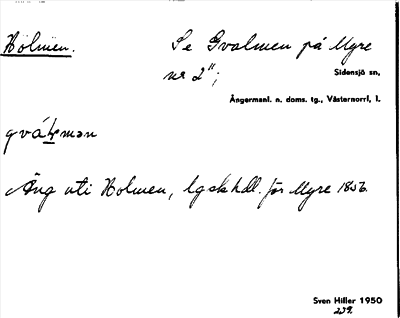 Holmen. Se Gvalmen på Myre
nr 2";
Sidensjö sn,
Ångermanl. n. doms. tg., Västernorrl, l.
Äng uti Holmen, lgskhdl. för Myre 1856.
Sven Hiller 1950